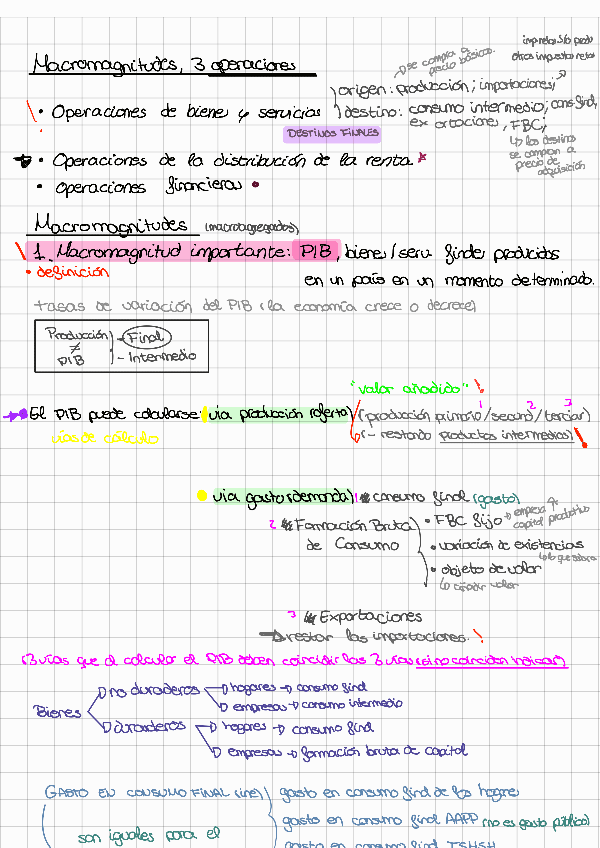 Macromagnitudes, 3 operaciones
se compra a precio básico.
otros impuestos netos
origen: producción; importaciones;
• Operaciones de biene y servicios
destino: consumo intermedio; cons. final,
exportaciones, FBC;
DESTINOS FINALES
los destinos
se compran a
precio de
adquisición
• Operaciones de la distribución de la renta *
• Operaciones financieras •
Macromagnitudes (macroagregados)
1. Macromagnitud importante: PIB, biene/serv. finales producidos
• definición
en un país en un momento determinado.
tasas de variación del PIB (la economía crece o decrece)
Producción - Final
≠
PIB - Intermedio
"valor añadido" !
1 2 3
El PIB puede calcularse: via producción (oferta) (producción primario/secund/terciar)
vías de cálculo
(- restando productos intermedios) !
• via gasto (demanda) 1 consumo final (gasto)
2 Formación Bruta
de Consumo
• FBC fijo → empresa capital productivo
• variación de existencias
lo que sobra
• objeto de valor
añadir valor
3 Exportaciones
→ restar las importaciones. !
(3 vías que al calcular el PIB deben coincidir las 3 vías
Bienes
no duraderos → hogares → consumo final
empresas → consumo intermedio
duraderos → hogares → consumo final
empresas → formación bruta de capital
GASTO EN CONSUMO FINAL (ine) gasto en consumo final de los hogares
gasto en consumo final AAPP (no es gasto público)
son iguales para el
gasto en consumo final ISFLSH